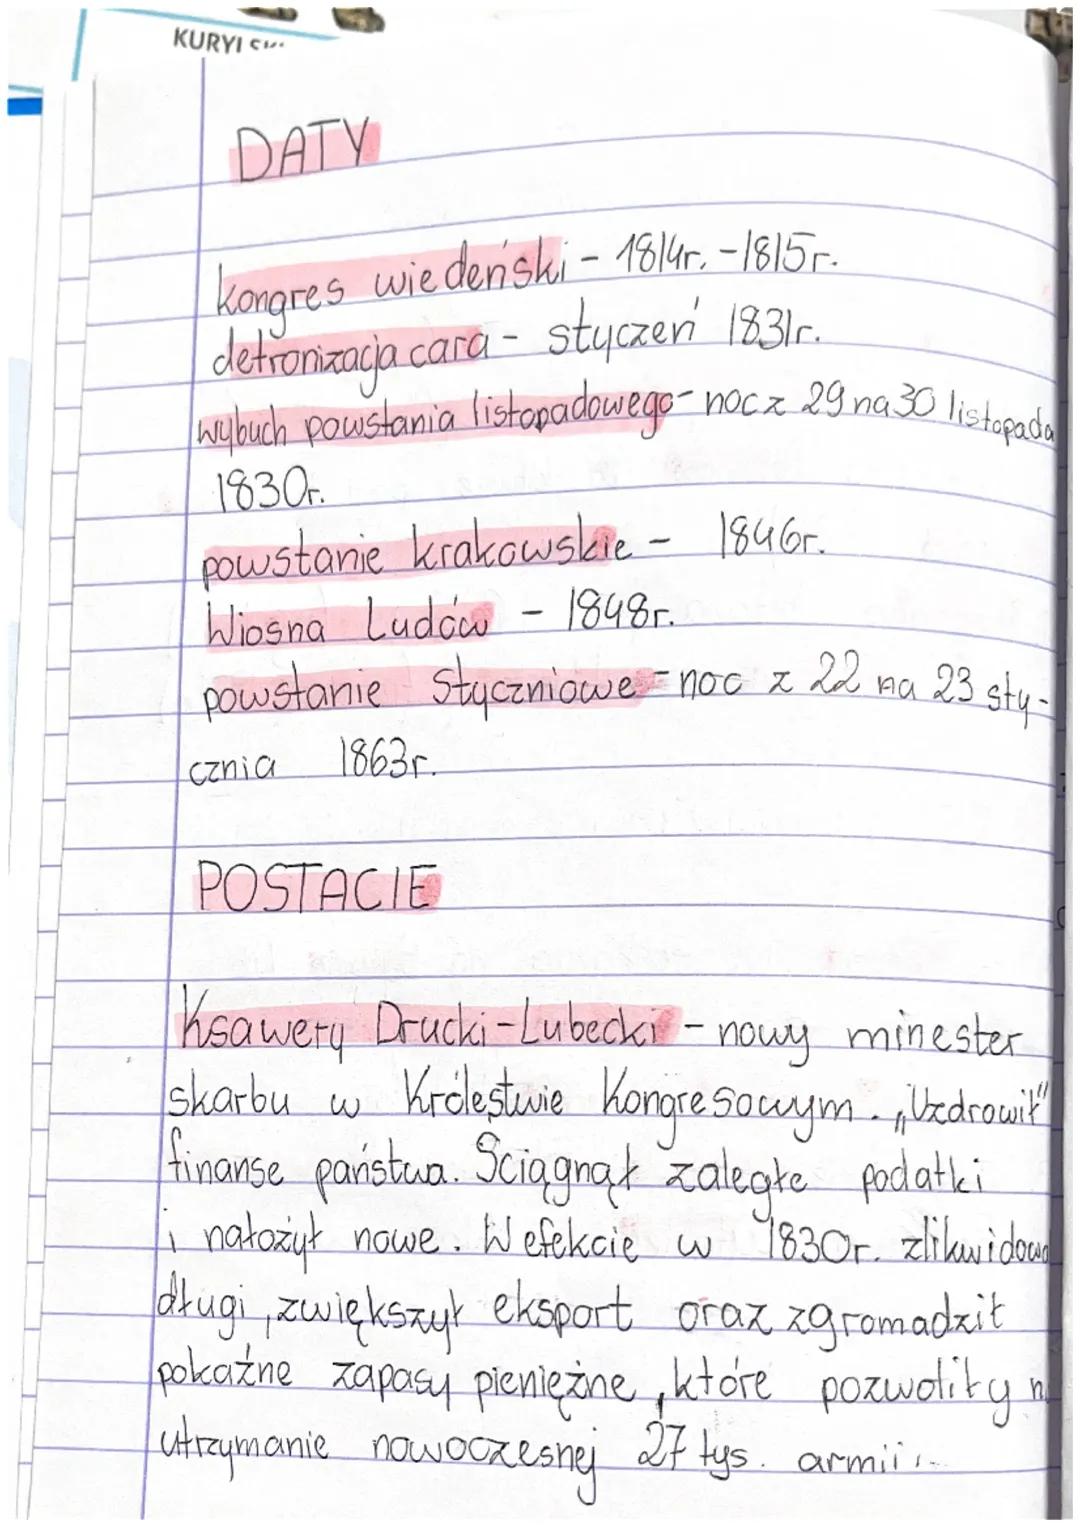 DATY
kongres wiedeński - 1814r. - 1815r.
detronizacja cara - styczeń 1831r.
wybuch powstania listopadowego - noc z 29 na 30 listopada
1830r.
powstanie krakowskie - 1846r.
Wiosna Ludów - 1848r.
powstanie styczniowe - noc z 22 na 23 sty-
cznia 1863r.
POSTACIE
Ksawery Drucki-Lubecki - nowy minester
skarbu w Królestwie Kongresowym. „Uzdrowił"
finanse państwa. Ściągnął zaległe podatki
i nałożył nowe. W efekcie w 1830r. zlikwidowa
długi, zwiększył eksport oraz zgromadził
pokaźne zapasy pieniężne, które pozwoliły n
utrzymanie nowoczesnej 27 tys. armii.